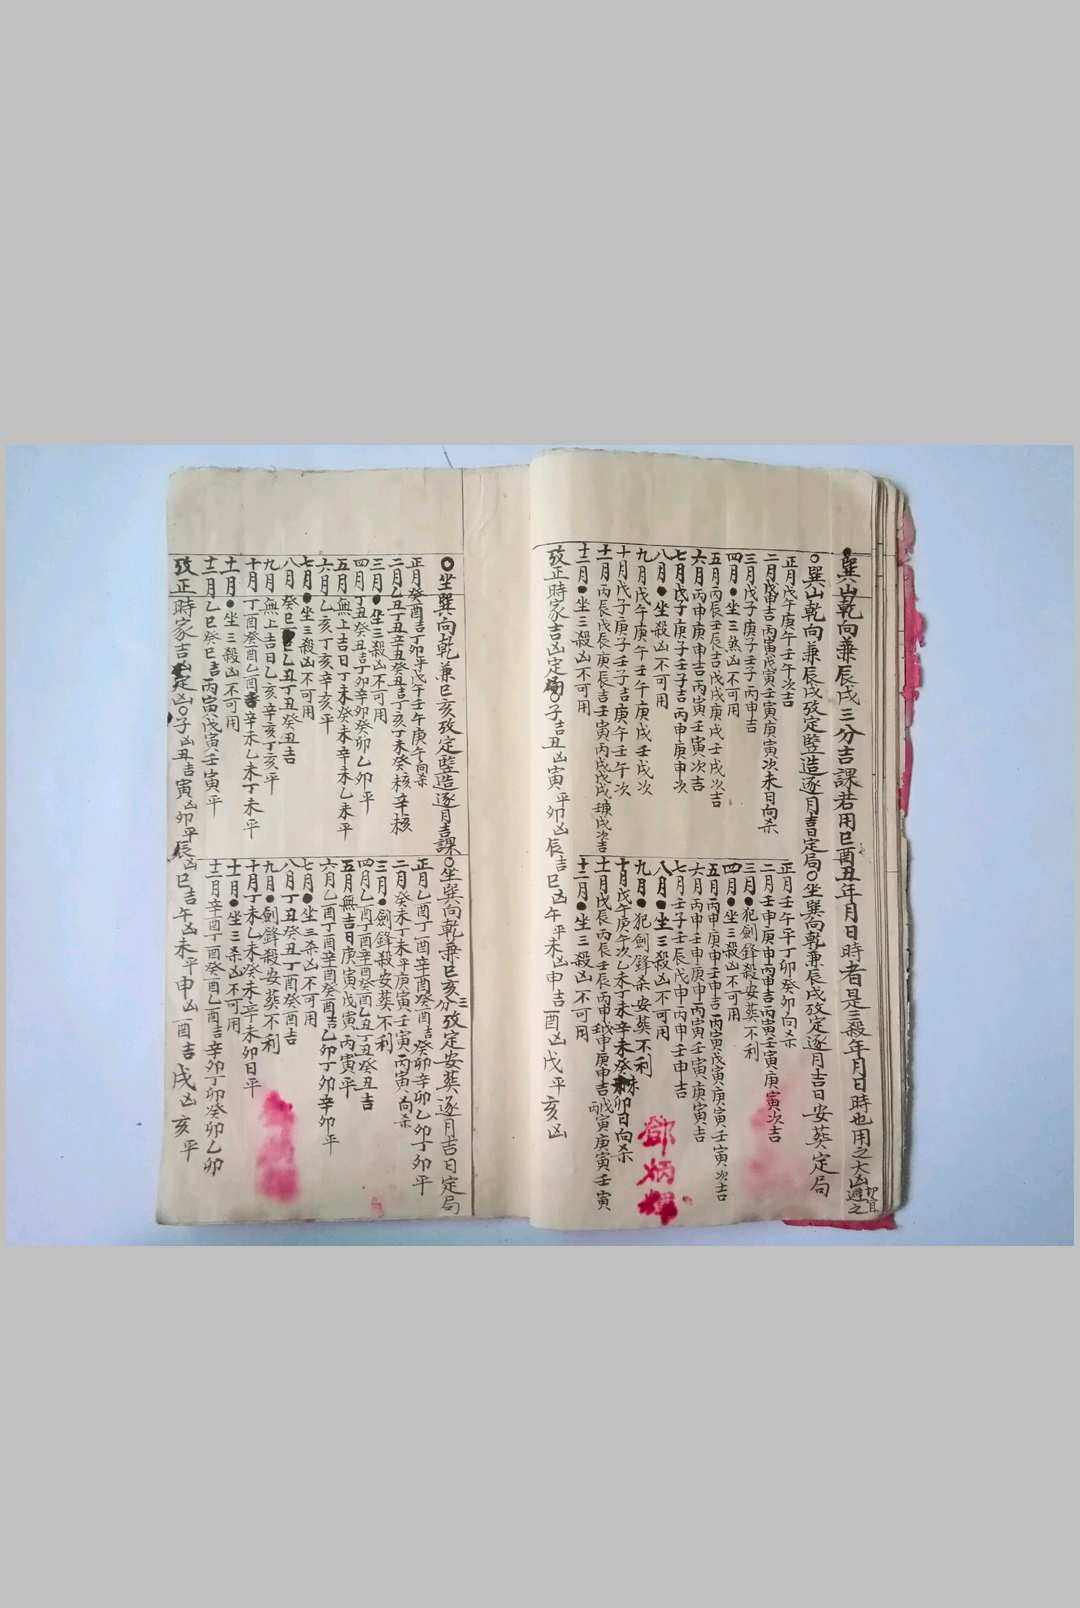 巽山乾向兼辰戌三分吉課若用巳酉丑年月日時者是三殺年月日時也用之大凶避之
切宜
○巽山乾向兼辰戌攷定豎造逐月吉定局○坐巽向乾兼辰戌攷定逐月吉日安葬定局
正月戊午庚午壬午次吉
二月戊申吉丙寅戊寅壬寅庚寅次未日向杀
三月戊子庚子壬子丙申吉
四月●坐三煞凶不可用
五月丙辰壬辰吉戊戌庚戌壬戌次吉
六月丙申庚申吉丙寅壬寅次吉
七月戊子庚子壬子吉丙申庚申次
八月●坐三殺凶不可用
九月戊午庚午壬午庚戌壬戌次
十月戊子庚子壬子吉庚午壬午次
十一月丙辰戊辰庚辰吉壬寅丙戌戊戌次吉
十二月●坐三殺凶不可用
正月壬午平丁卯癸卯向杀
二月壬申庚申丙申吉丙寅壬寅庚寅次吉
三月●犯劍鋒殺安葬不利
四月●坐三殺凶不可用
五月丙申庚申壬申吉丙寅戊寅庚寅壬寅次吉
六月丙申壬申庚申丙寅壬寅庚寅吉
七月壬子壬辰戊申丙申壬申吉
八月●坐三殺凶不可用
九月●犯劍鋒杀安葬不利
十月戊午庚午次乙未丁未辛未癸未卯日向杀
十一月戊辰丙辰壬辰丙申庚申吉戊寅庚寅壬寅
十二月●坐三殺凶不可用
攷正時家吉凶定局○子吉丑凶寅平卯凶辰吉巳凶午平未凶申吉酉凶戌平亥凶
鄧炳輝
○坐巽向乾兼巳亥攷定豎造逐月吉課○坐巽向乾兼巳亥三分攷定安葬逐月吉日定局
正月癸酉吉丁卯平戊午壬午庚午向杀
二月乙丑丁丑辛丑癸丑吉丁亥丁未癸核辛核
三月●坐三殺凶不可用
四月丁丑癸丑吉丁卯辛卯癸卯乙卯平
五月無上吉日丁未癸未辛未乙未平
六月乙亥丁亥辛亥平
七月●坐三殺凶不可用
八月癸巳乙丑丁丑癸丑吉
九月無上吉日乙亥辛亥丁亥平
十月丁酉癸酉乙酉吉辛未乙未丁未平
十一月●坐三殺凶不可用
十二月乙巳癸巳吉丙寅戊寅壬寅平
正月乙酉丁酉辛酉癸酉吉癸卯辛卯乙卯丁卯平
二月癸未丁未平庚寅壬寅丙寅向杀
三月●劍鋒殺安葬不利
四月乙酉丁酉辛酉癸酉乙丑丁丑癸丑吉
五月無吉日庚寅戊寅丙寅平
六月乙酉丁酉辛酉癸酉吉乙卯丁卯辛卯平
七月●坐三杀凶不可用
八月丁丑癸丑丁酉癸酉吉
九月●劍鋒殺安葬不利
十月丁未乙未癸未辛未卯日平
十一月●坐三杀凶不可用
十二月辛酉丁酉癸酉乙酉吉辛卯丁卯癸卯乙卯
攷正時家吉凶定凶○子凶丑吉寅凶卯平辰凶巳吉午凶未平申凶酉吉戌凶亥平